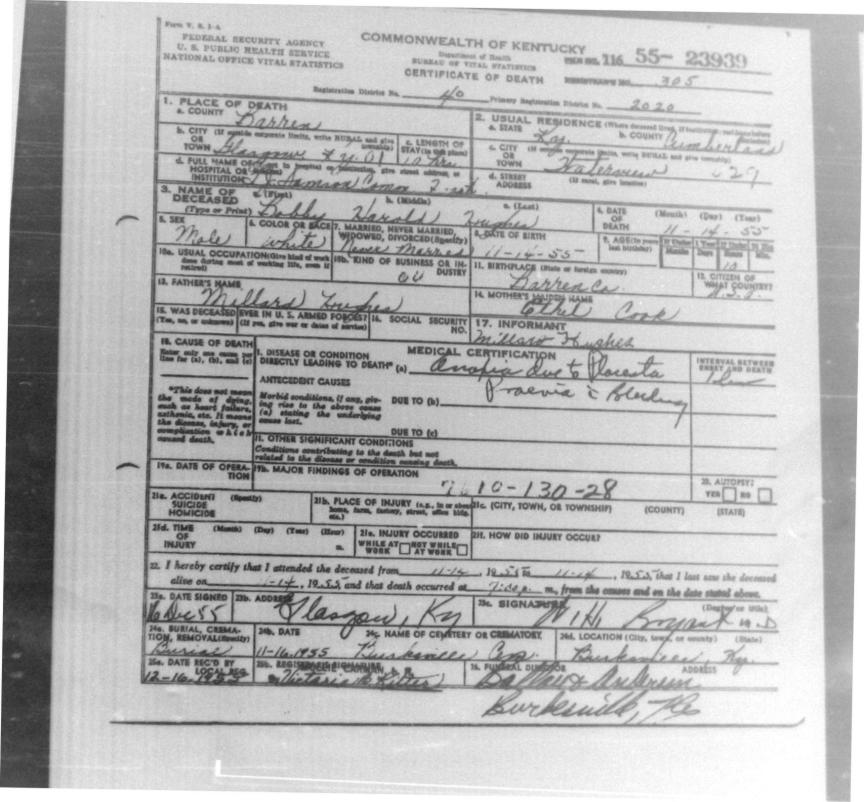 Form V. S. 1-A
FEDERAL SECURITY AGENCY
U. S. PUBLIC HEALTH SERVICE
NATIONAL OFFICE VITAL STATISTICS
COMMONWEALTH OF KENTUCKY
Department of Health
BUREAU OF VITAL STATISTICS
CERTIFICATE OF DEATH
FILE NO. 116 55- 23939
REGISTRAR'S NO. 305
Registration District No. 40 Primary Registration District No. 2020
1. PLACE OF DEATH
a. COUNTY Barren
b. CITY (If outside corporate limits, write RURAL and give township) OR TOWN Glasgow Ky.
c. LENGTH OF STAY (in this place) 10 hrs
d. FULL NAME OF (If not in hospital or institution, give street address or location) HOSPITAL OR INSTITUTION T. J. Samson Comm
2. USUAL RESIDENCE (Where deceased lived. If institution: residence before admission)
a. STATE Ky. b. COUNTY Cumberland
c. CITY (If outside corporate limits, write RURAL and give township) OR TOWN Waterview 029
d. STREET ADDRESS (If rural, give location)
3. NAME OF DECEASED (Type or Print)
a. (First) b. (Middle) c. (Last)
Bobby Harold Hughes
4. DATE OF DEATH (Month) (Day) (Year)
11-14-55
5. SEX Male
6. COLOR OR RACE White
7. MARRIED, NEVER MARRIED, WIDOWED, DIVORCED (Specify) Never Married
8. DATE OF BIRTH 11-14-55
9. AGE (In years last birthday) If Under 1 Year Months Days If Under 24 Hrs. Hours Min. 10
10a. USUAL OCCUPATION (Give kind of work done during most of working life, even if retired)
10b. KIND OF BUSINESS OR INDUSTRY
11. BIRTHPLACE (State or foreign country) Barren Co.
12. CITIZEN OF WHAT COUNTRY? U.S.A.
13. FATHER'S NAME
Millard Hughes
14. MOTHER'S MAIDEN NAME
Ethel Cook
15. WAS DECEASED EVER IN U. S. ARMED FORCES?
(Yes, no, or unknown) (If yes, give war or dates of service)
16. SOCIAL SECURITY NO.
17. INFORMANT
Millard Hughes
18. CAUSE OF DEATH
Enter only one cause per line for (a), (b), and (c)
*This does not mean the mode of dying, such as heart failure, asthenia, etc. It means the disease, injury, or complication which caused death.
MEDICAL CERTIFICATION
I. DISEASE OR CONDITION DIRECTLY LEADING TO DEATH* (a) Anoxia due to Placenta
Praevia c Bleeding
INTERVAL BETWEEN ONSET AND DEATH
ANTECEDENT CAUSES
Morbid conditions, if any, giving rise to the above cause (a) stating the underlying cause last.
DUE TO (b)
DUE TO (c)
II. OTHER SIGNIFICANT CONDITIONS
Conditions contributing to the death but not related to the disease or condition causing death.
19a. DATE OF OPERATION
19b. MAJOR FINDINGS OF OPERATION
7610-130-28
20. AUTOPSY?
YES NO
21a. ACCIDENT (Specify) SUICIDE HOMICIDE
21b. PLACE OF INJURY (e.g., in or about home, farm, factory, street, office bldg. etc.)
21c. (CITY, TOWN, OR TOWNSHIP) (COUNTY) (STATE)
21d. TIME OF INJURY (Month) (Day) (Year) (Hour) m.
21e. INJURY OCCURRED
WHILE AT WORK NOT WHILE AT WORK
21f. HOW DID INJURY OCCUR?
22. I hereby certify that I attended the deceased from 11-14, 1955 to 11-14, 1955, that I last saw the deceased
alive on 11-14, 1955, and that death occurred at 7:30 p. m., from the causes and on the date stated above.
23a. DATE SIGNED 16 Dec 55
23b. ADDRESS Glasgow, Ky
23c. SIGNATURE (Degree or title) W. H. Bryant M.D
24a. BURIAL, CREMATION, REMOVAL (Specify) Burial
24b. DATE 11-16-1955
24c. NAME OF CEMETERY OR CREMATORY Burkesville Cem.
24d. LOCATION (City, town, or county) (State) Burkesville Ky.
25a. DATE REC'D BY LOCAL REG. 12-16-1955
25b. REGISTRAR'S SIGNATURE Victoria B Ritter
26. FUNERAL DIRECTOR ADDRESS
Anderson
Burkesville, Ky